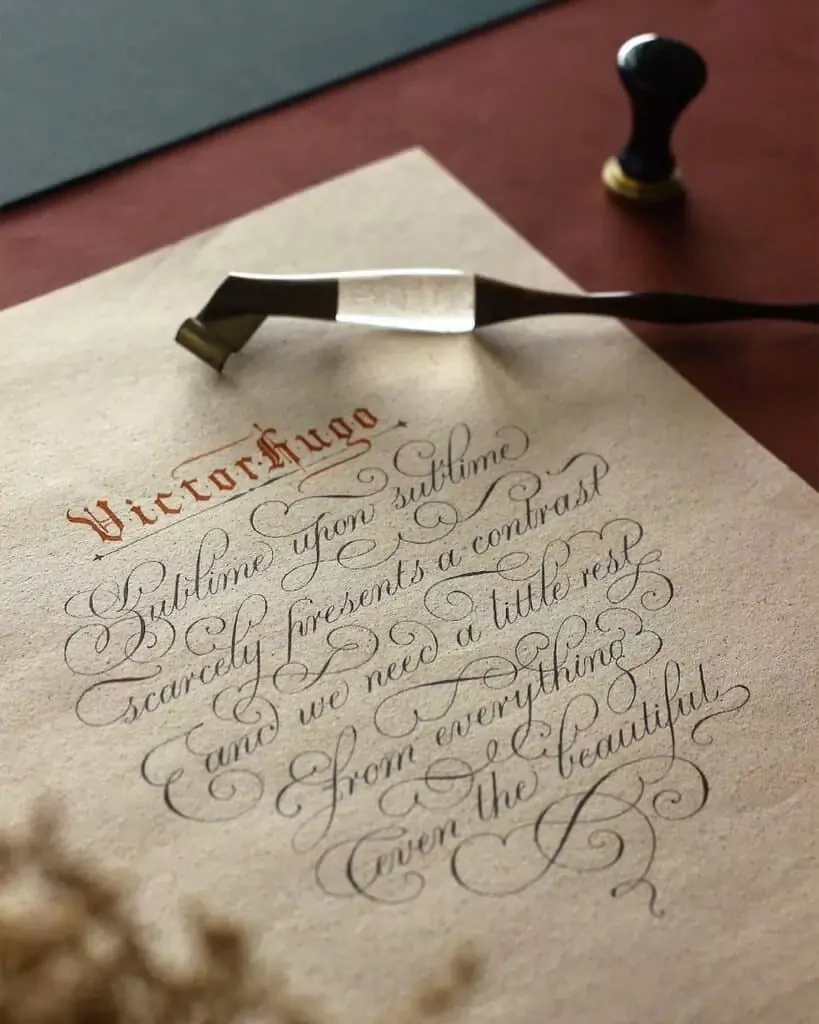 Victor Hugo
Sublime upon sublime
scarcely presents a contrast
and we need a little rest
From everything
even the beautiful